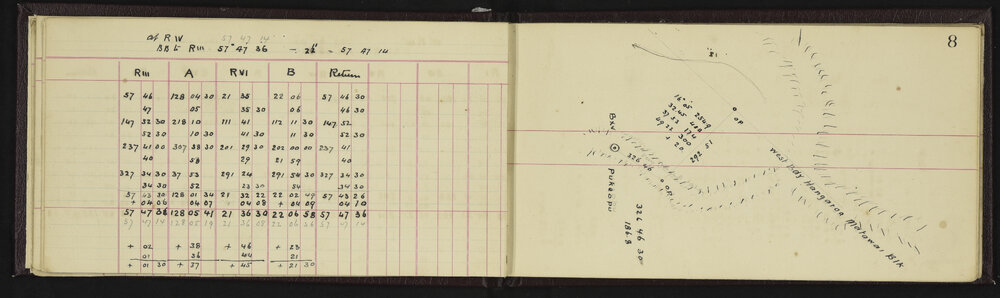 at R IV 57 47 14
BB to R III 57° 47 36 - 22" - 57 47 14
R III A R VI B Return
57 46 128 04 30 21 35 22 06 57 46 30
47 05 35 30 06 46 30
147 52 30 218 10 111 41 112 11 30 147 52
52 30 10 30 41 30 11 30 52 30
237 41 00 307 38 30 201 29 30 202 00 00 237 41
40 58 29 21 59 40
327 34 30 37 53 291 24 291 54 30 327 34 30
34 30 52 23 30 54 34 30
57 43 30 128 01 34 21 32 22 22 02 49 57 43 26
+ 04 06 04 07 + 04 08 + 04 09 04 10
57 47 36 128 05 41 21 36 30 22 06 58 57 47 36
57 47 14 128 05 19 21 36 08 22 06 36 57 47 14
+ 02 + 38 + 46 + 23
01 36 44 21
+ 01 30 + 37 + 45 + 21 30
8
16° 05 2549
32 45 400
37 53 174
49 22 300
+ 20
292 51
OP
Bxv
326 46
OP
Pukeopu
326 46 30
1868
West Bdy Hangaroa Matawai Blk